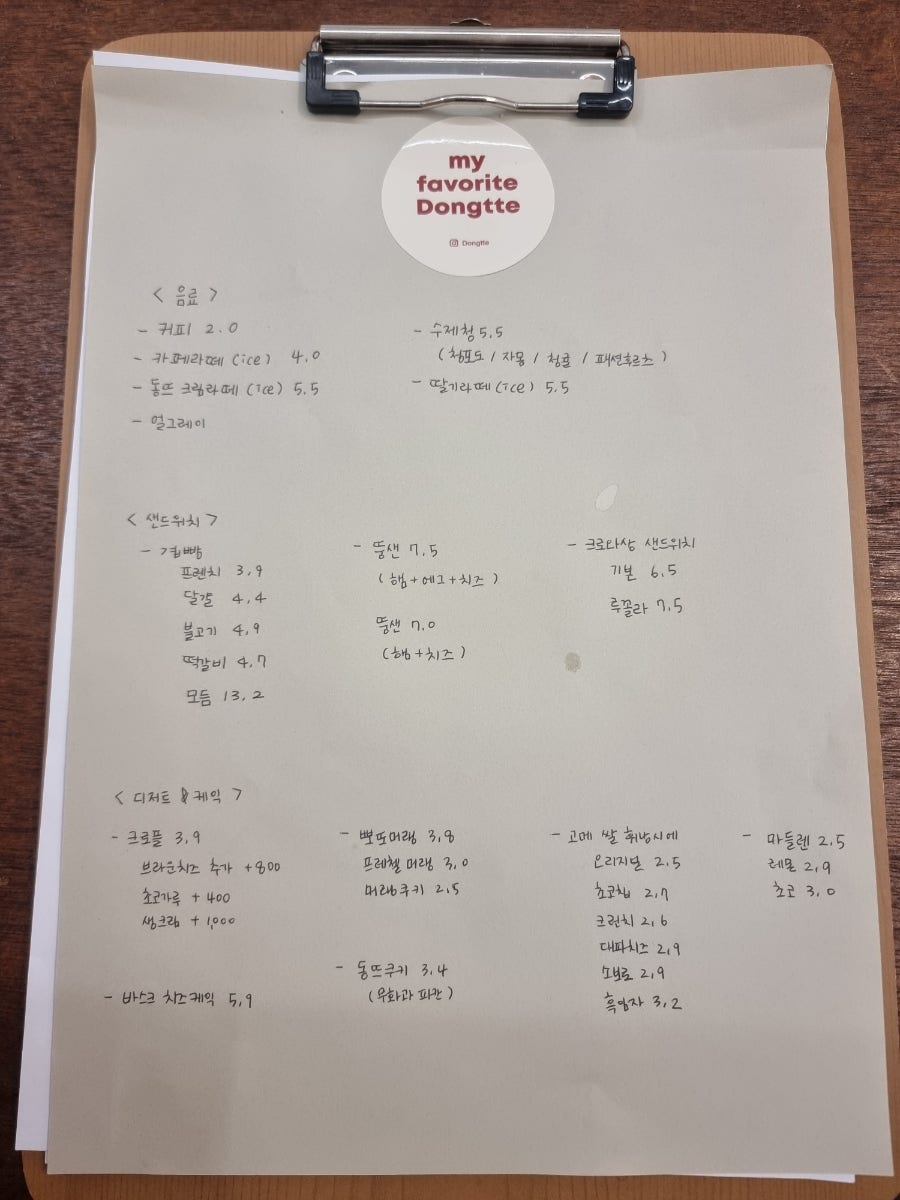 my
favorite
Dongtte
Dongtte
< 음료 >
- 커피 2.0
- 카페라떼 (ice) 4.0
- 동뜨 크림라떼 (ice) 5.5
- 얼그레이
- 수제청 5.5
( 청포도 / 자몽 / 청귤 / 패션후르츠 )
- 딸기라떼 (ice) 5.5
< 샌드위치 >
- 겹빵
프렌치 3,9
달걀 4,4
불고기 4,9
떡갈비 4,7
모듬 13,2
- 뚱샌 7,5
( 햄 + 에그 + 치즈 )
뚱샌 7.0
( 햄 + 치즈 )
- 크로와상 샌드위치
기본 6.5
루꼴라 7,5
< 디저트 & 케익 >
- 크로플 3,9
브라운치즈 추가 +800
초코가루 + 400
생크림 + 1,000
- 바스크 치즈케익 5,9
- 뽀또머랭 3,8
프레첼 머랭 3,0
머랭쿠키 2,5
- 동뜨쿠키 3,4
( 무화과 피칸 )
- 고메 쌀 휘낭시에
오리지널 2,5
초코칩 2,7
크런치 2,6
대파치즈 2,9
소보로 2,9
흑임자 3,2
- 마들렌 2,5
레몬 2,9
초코 3,0